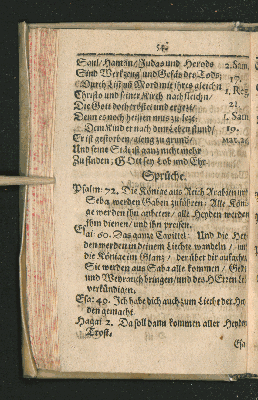 54.
Saul/ Haman/ Judas und Herods
Sind Werckzeug und Gefäs des Tods;
Durch List und Mord mit ihres gleichn
Christo und seiner Kirch nachschleichn/
Die Gott doch erhöret und ergetzt/
Denn es noch heissen mus zu letzt:
Dem Kind er nach dem Leben stund/
Er ist gestorben/ gieng zu grund/
Und seine Stät ist gantz nicht mehr
Zu finden; GOtt sey Lob und Ehr.
2. Sam.
17.
1. Reg.
21
1. Sam.
19.
Mat. 26
Sprüche.
Psalm: 72. Die Könige aus Reich Arabien und
Seba werden Gaben zuführen: Alle Köni-
ge werden ihn anbeten/ alle Heyden werden
ihm dienen/ und ihn preisen.
Esai: 60. Das gantze Capittel: Und die Hei-
den werden in deinem Liechte wandeln/ und
die Könige im Glantz/ der über dir aufgehet
Sie werden aus Saba alle kommen/ Gold
und Weyrauch bringen/ und des HErren Lob
verkündigen.
Esa: 49. Ich habe dich auch zum Liecht der Hei-
den gemacht.
Hagai 2. Da soll dann kommen aller Heyden
Trost.
Esa